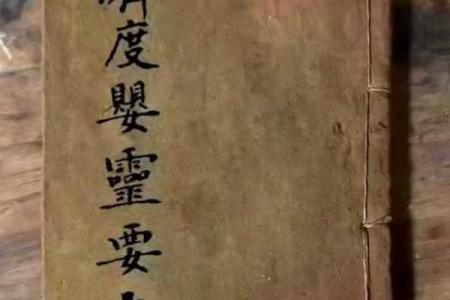 濟度嬰靈要